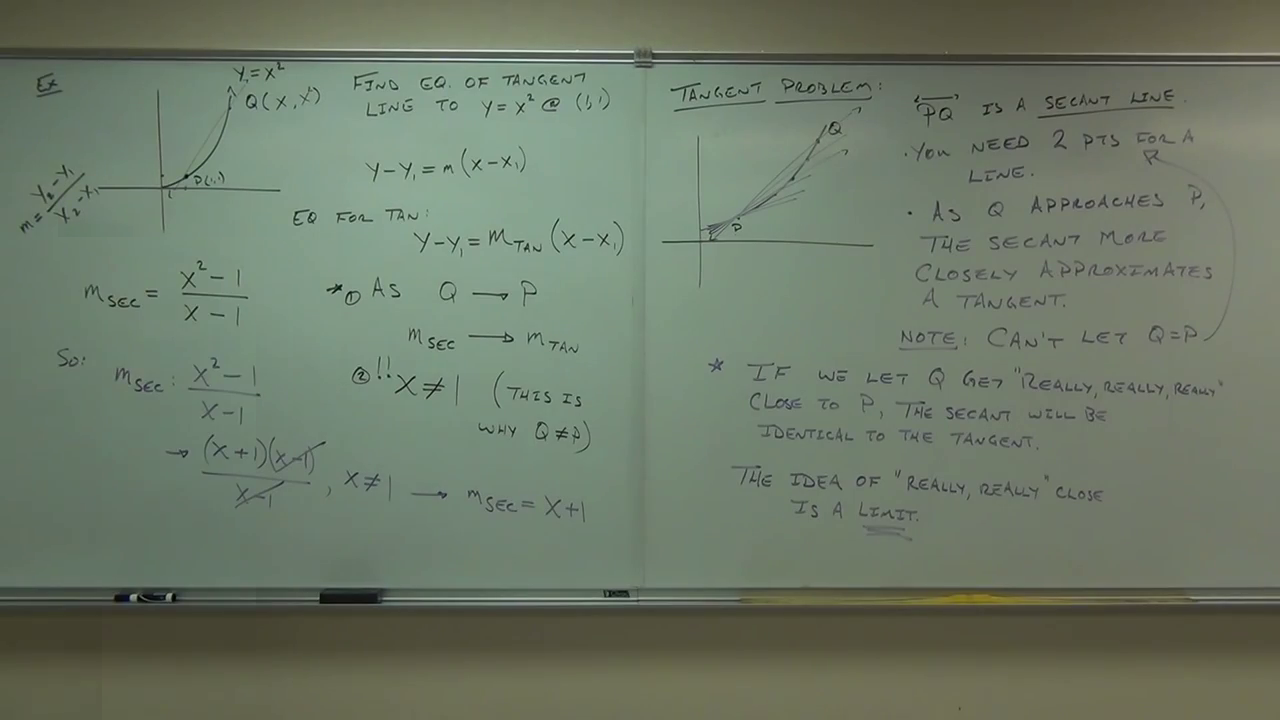 Ex
y=x²
Q(x, x²)
P(1,1)
m = y₂-y₁ / x₂-x₁
FIND EQ. OF TANGENT
LINE TO y=x² @ (1,1)
y-y₁=m(x-x₁)
EQ FOR TAN:
y-y₁=m_TAN(x-x₁)
m_SEC = x²-1 / x-1
* ① AS Q → P
m_SEC → m_TAN
SO:
m_SEC: x²-1 / x-1
② !! x≠1 (THIS IS
WHY Q≠P)
→ (x+1)(x-1) / x-1 , x≠1 → m_SEC = x+1
TANGENT PROBLEM:
Q
P
PQ IS A SECANT LINE.
· YOU NEED 2 PTS FOR A
LINE.
· AS Q APPROACHES P,
THE SECANT MORE
CLOSELY APPROXIMATES
A TANGENT.
NOTE: CAN'T LET Q=P
* IF WE LET Q GET "REALLY, REALLY, REALLY"
CLOSE TO P, THE SECANT WILL BE
IDENTICAL TO THE TANGENT.
THE IDEA OF "REALLY, REALLY" CLOSE
IS A LIMIT.